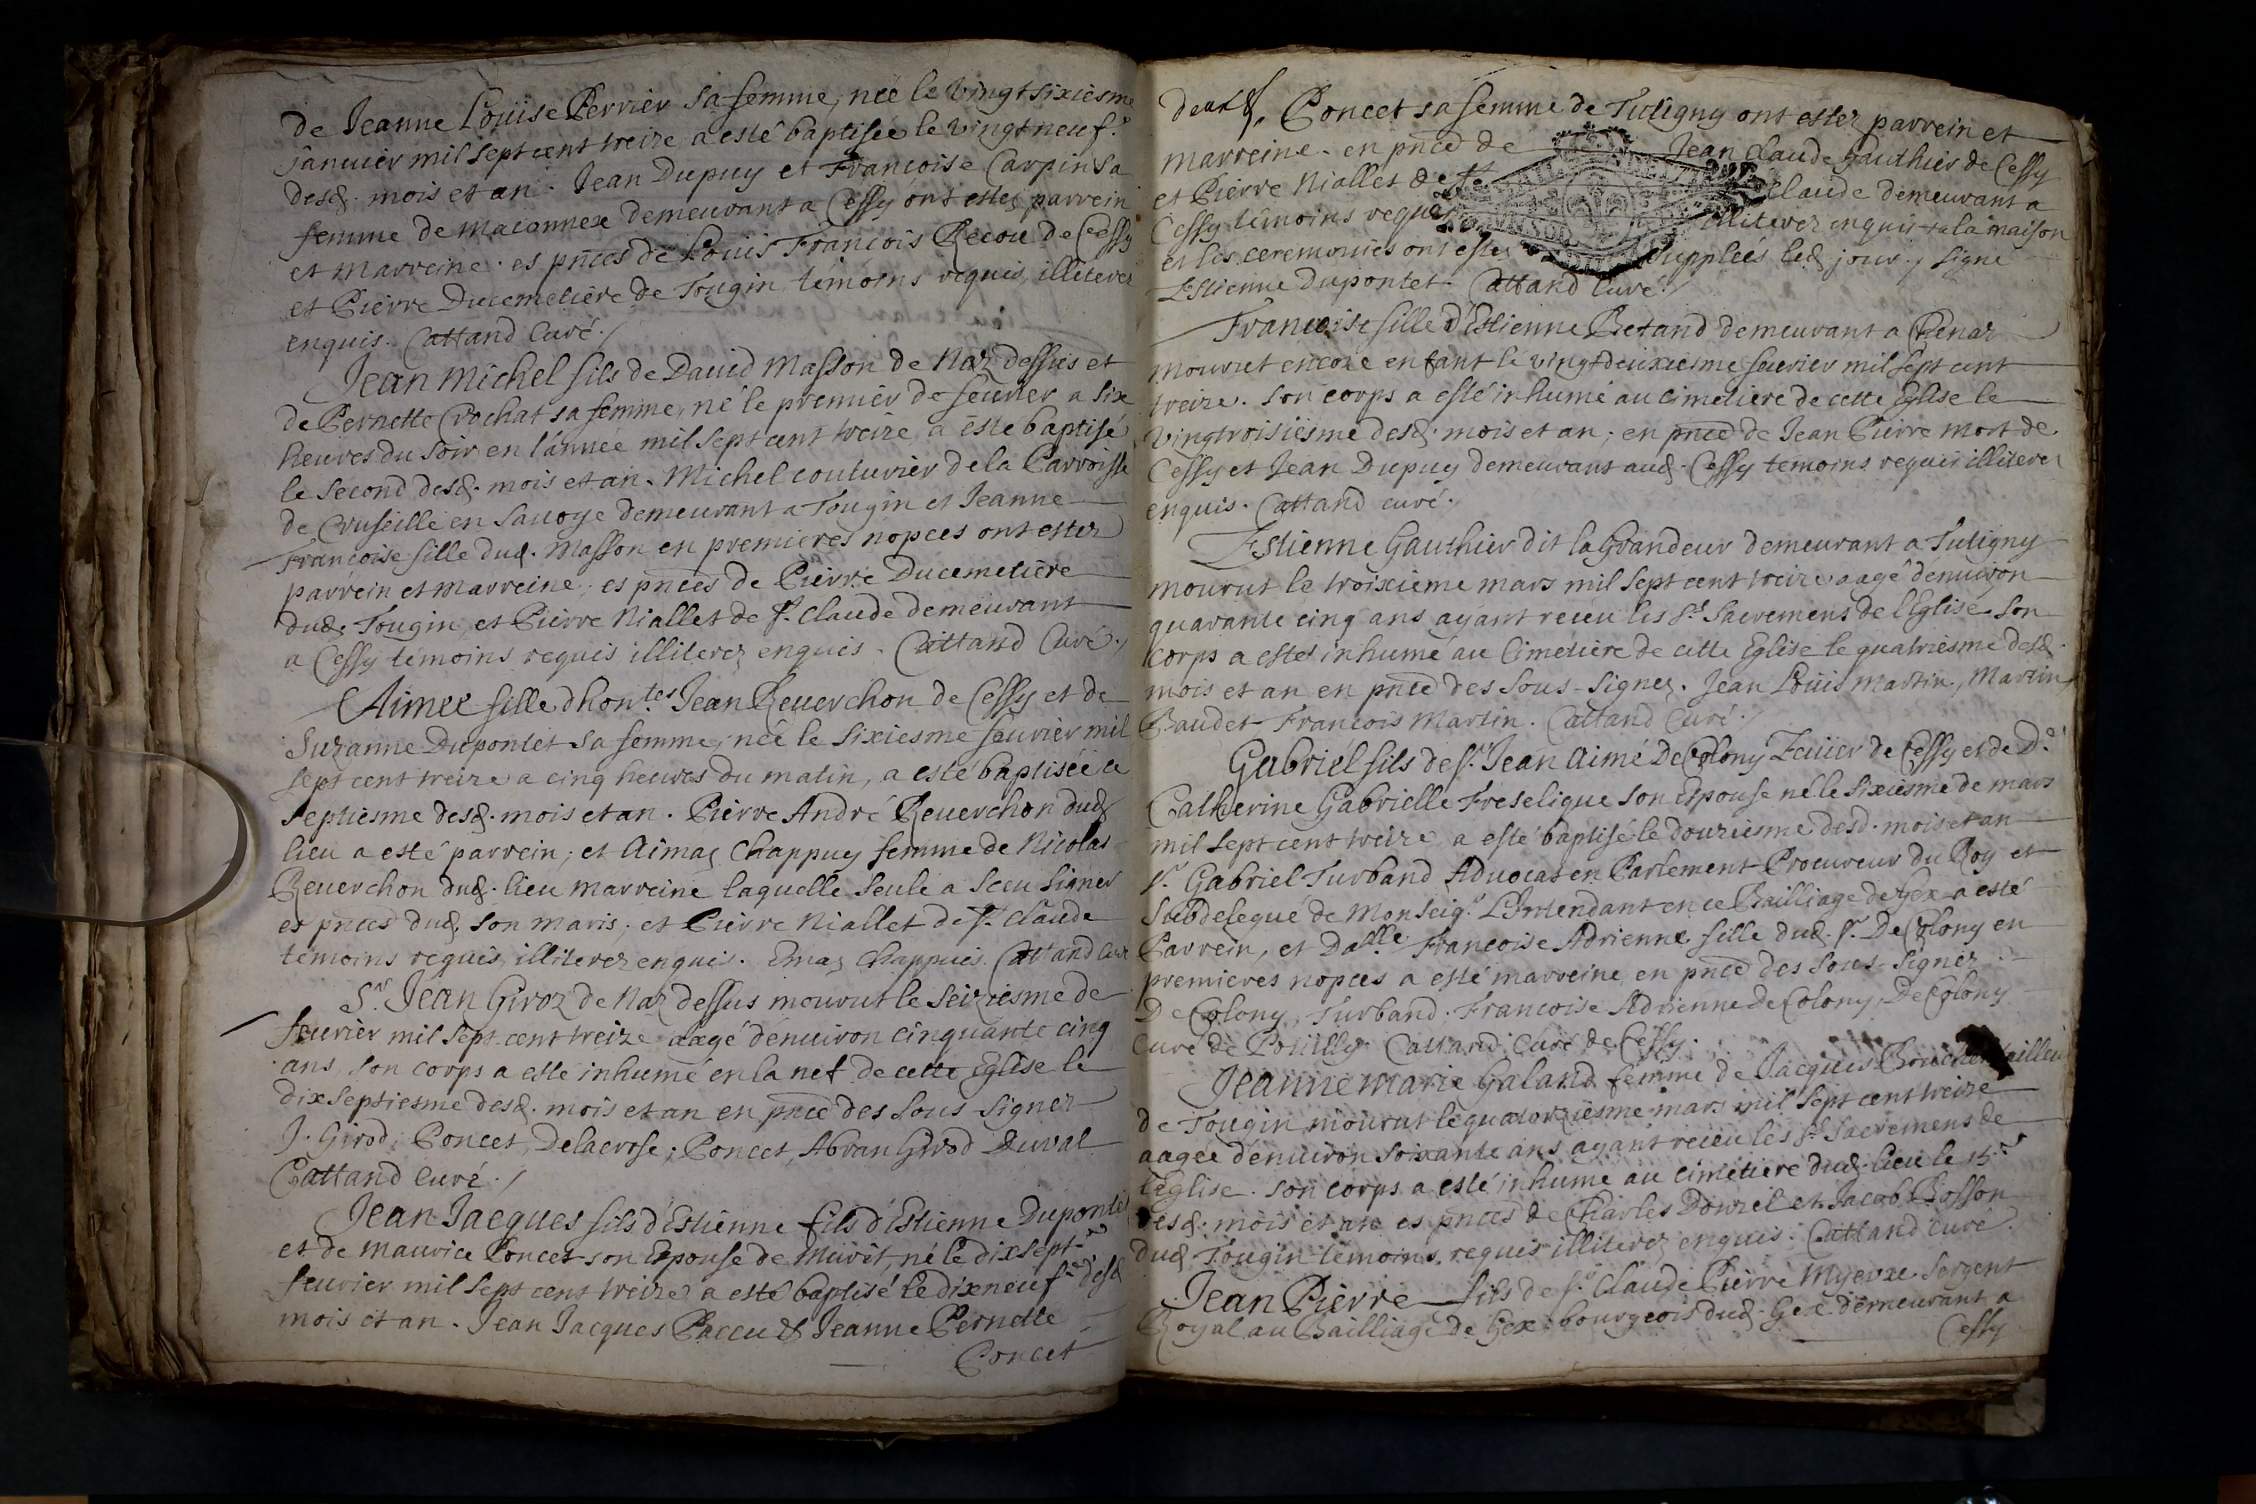 de Jeanne Louïse Perrier sa femme, neë le vingt sixiesme
janvier mil sept cent treize a esté baptisée le vingt neuf.e
desd. mois et an. Jean Dupuy et Francoise Carpin sa
femme de Maconnex demeurant a Cessy ont estez parrein
et marreine. es pnces de Louis François Recou de Cessy
et Pierre Ducemetiere de Tougin témoins requis, illiterez
enquis. Cattand Curé./
Jean Michel fils de David Masson de Naz dessus et
de Pernette Crochat sa femme, né le premier de feurier a six
heures du soir en l'année mil sept cent treize, a esté baptisé
le second desd. mois et an. Michel couturier de la Parroisse
de Cruseille en Sauoye demeurant a Tougin et Jeanne
Françoise fille dud. Masson en premieres nopces ont estez
parrein et marreine; es pnces de Pierre Ducemetiere
dud. Tougin, et Pierre Niallet de St. Claude demeurant
a Cessy témoins requis illiterez enquis. Cattand Curé./
Aimee fille dhon.tes Jean Reuerchon de Cessy et de
Suzanne Dupontet sa femme, née le sixiesme feurier mil
sept cent treize a cinq heures du matin, a esté baptisée le
septiesme desd. mois et an. Pierre André Reuerchon dud.
lieu a esté parrein; et Aimaz Chappuy femme de Nicolas
Reuerchon dud. lieu marreine laquelle seule a sceu signer
es pnces dud. son maris; et Pierre Niallet de St. Claude
témoins requis, illiterez enquis. Emaz Chappuis. Cattand Cure
Sr. Jean Giroz de Naz dessus mourut le seiziesme de
feurier mil sept cent treize aagé d'enuiron cinquante cinq
ans, son corps a esté inhumé en la nef de cette Eglise le
dix septiesme desd. mois et an en pnce des sous signez
J. Girod; Poncet, Delacrose; Poncet, Abran Girod Duval
Cattand Curé./
Jean Jacques fils d'Estienne fils d'Estienne Dupontet
et de Maurice Poncet son Epouse de né le dix sept.e
feurier mil sept cent treize a esté baptisé le dix neuf.e desd
mois et an. Jean Jacques Paccu & Jeanne Pernette
Poncet
Poncet sa femme de Tutigny ont estez parrein et
marreine. en pnce de Jean Claude Gauthier de Cessy
et Pierre Niallet de St. Claude demeurant a
Cessy témoins requis illiterez enquis a la maison
et les ceremonies ont estez supplées led. jour., signé
Estienne Dupontet. Cattand Curé./
Francoise fille d'Estienne Betand demeurant a Chenaz
mourut encore enfant le vingt deuxiesme feurier mil sept cent
treize. Son corps a esté inhumé au cimetiere de cette Eglise le
vingtroisiesme desd. mois et an; en pnce de Jean Pierre Mort de
Cessy et Jean Dupuy demeurant aud. Cessy témoins requis illiterez
enquis. Cattand curé./
Estienne Gauthier dit la Grandeur demeurant a Tutigny
mourut le troixieme mars mil sept cent treize aagé d'enuiron
quarante cinq ans ayant receu les Sts. Sacremens de l'Eglise. Son
corps a esté inhumé au Cimetiere de cette Eglise le quatriesme desd.
mois et an en pnce des sous-signez. Jean Louis Martin, Martin
Baudet François Martin. Cattand Curé./
Gabriel fils de Sr. Jean Aimé De Colony Ecuïer de Cessy et de De.
Catherine Gabrielle Freselique son Epouse né le sixiesme de mars
mil sept cent treize, a esté baptisé le douziesme desd. mois et an
Sr. Gabriel Turband Aduocat en Parlement Procureur du Roy et
Subdelegué de Monseigr. L'Intendant en ce Bailliage de Gex a esté
Parrein, et Dalle. Françoise Adrienne fille dud. Sr. De Colony en
premieres nopces a esté marreine, en pnce des sous-signez
De Colony, Turband. Françoise Adrienne de Colony, De Colony
Curé de Pouilly. Cattand Curé de Cessy.
Jeanne Marie Galand femme de Jacques
de Tougin mourut le quatorziesme mars mil sept cent treize
aagée d'enuiron soixante ans ayant receu les Sts. Sacremens de
l'Eglise. Son corps a esté inhumé au cimetiere dud. lieu le 15.e
desd. mois et an es pnces de Charles et Jacob Bosson
dud. Tougin témoins requis illiterez enquis. Cattand Curé.
Jean Pierre fils de Sr. Claude Pierre Sergent
Royal au Bailliage de Gex bourgeois dud. Gex demeurant a
Cessy